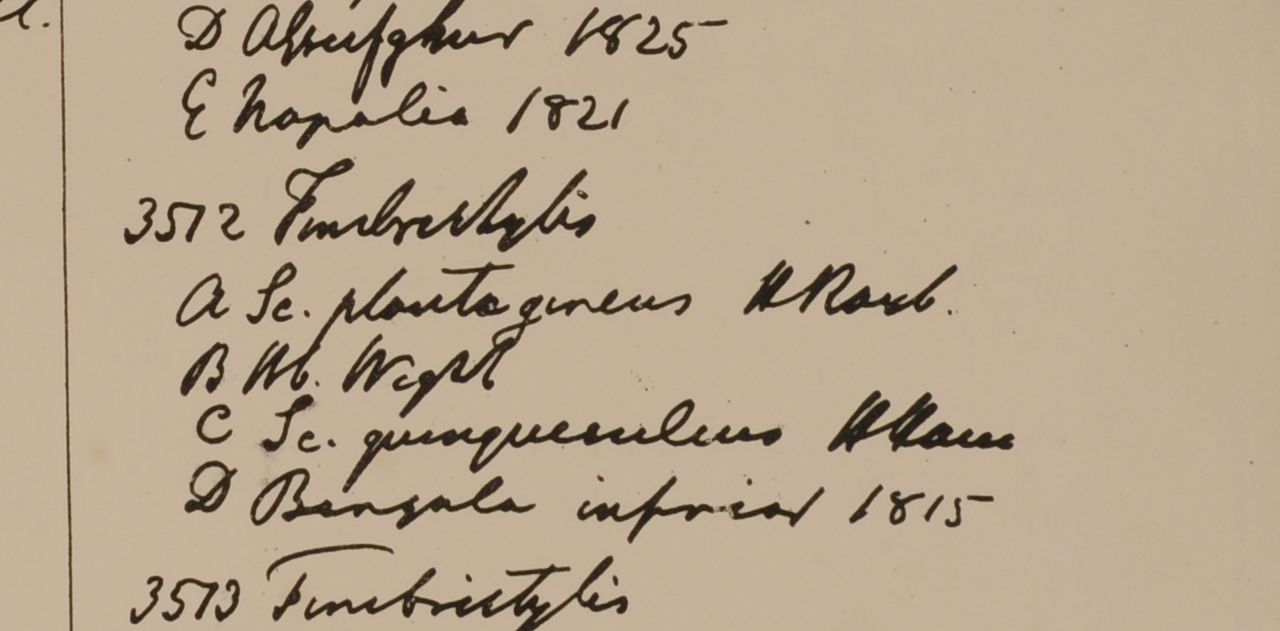 D Assufghur 1825
E Napalia 1821
3512 Fimbristylis
A Sc. plantagineus HRoxb.
B Hb. Wight
C Sc. quinquesulcus HHam
D Bengala inferior 1815
3513 Fimbristylis